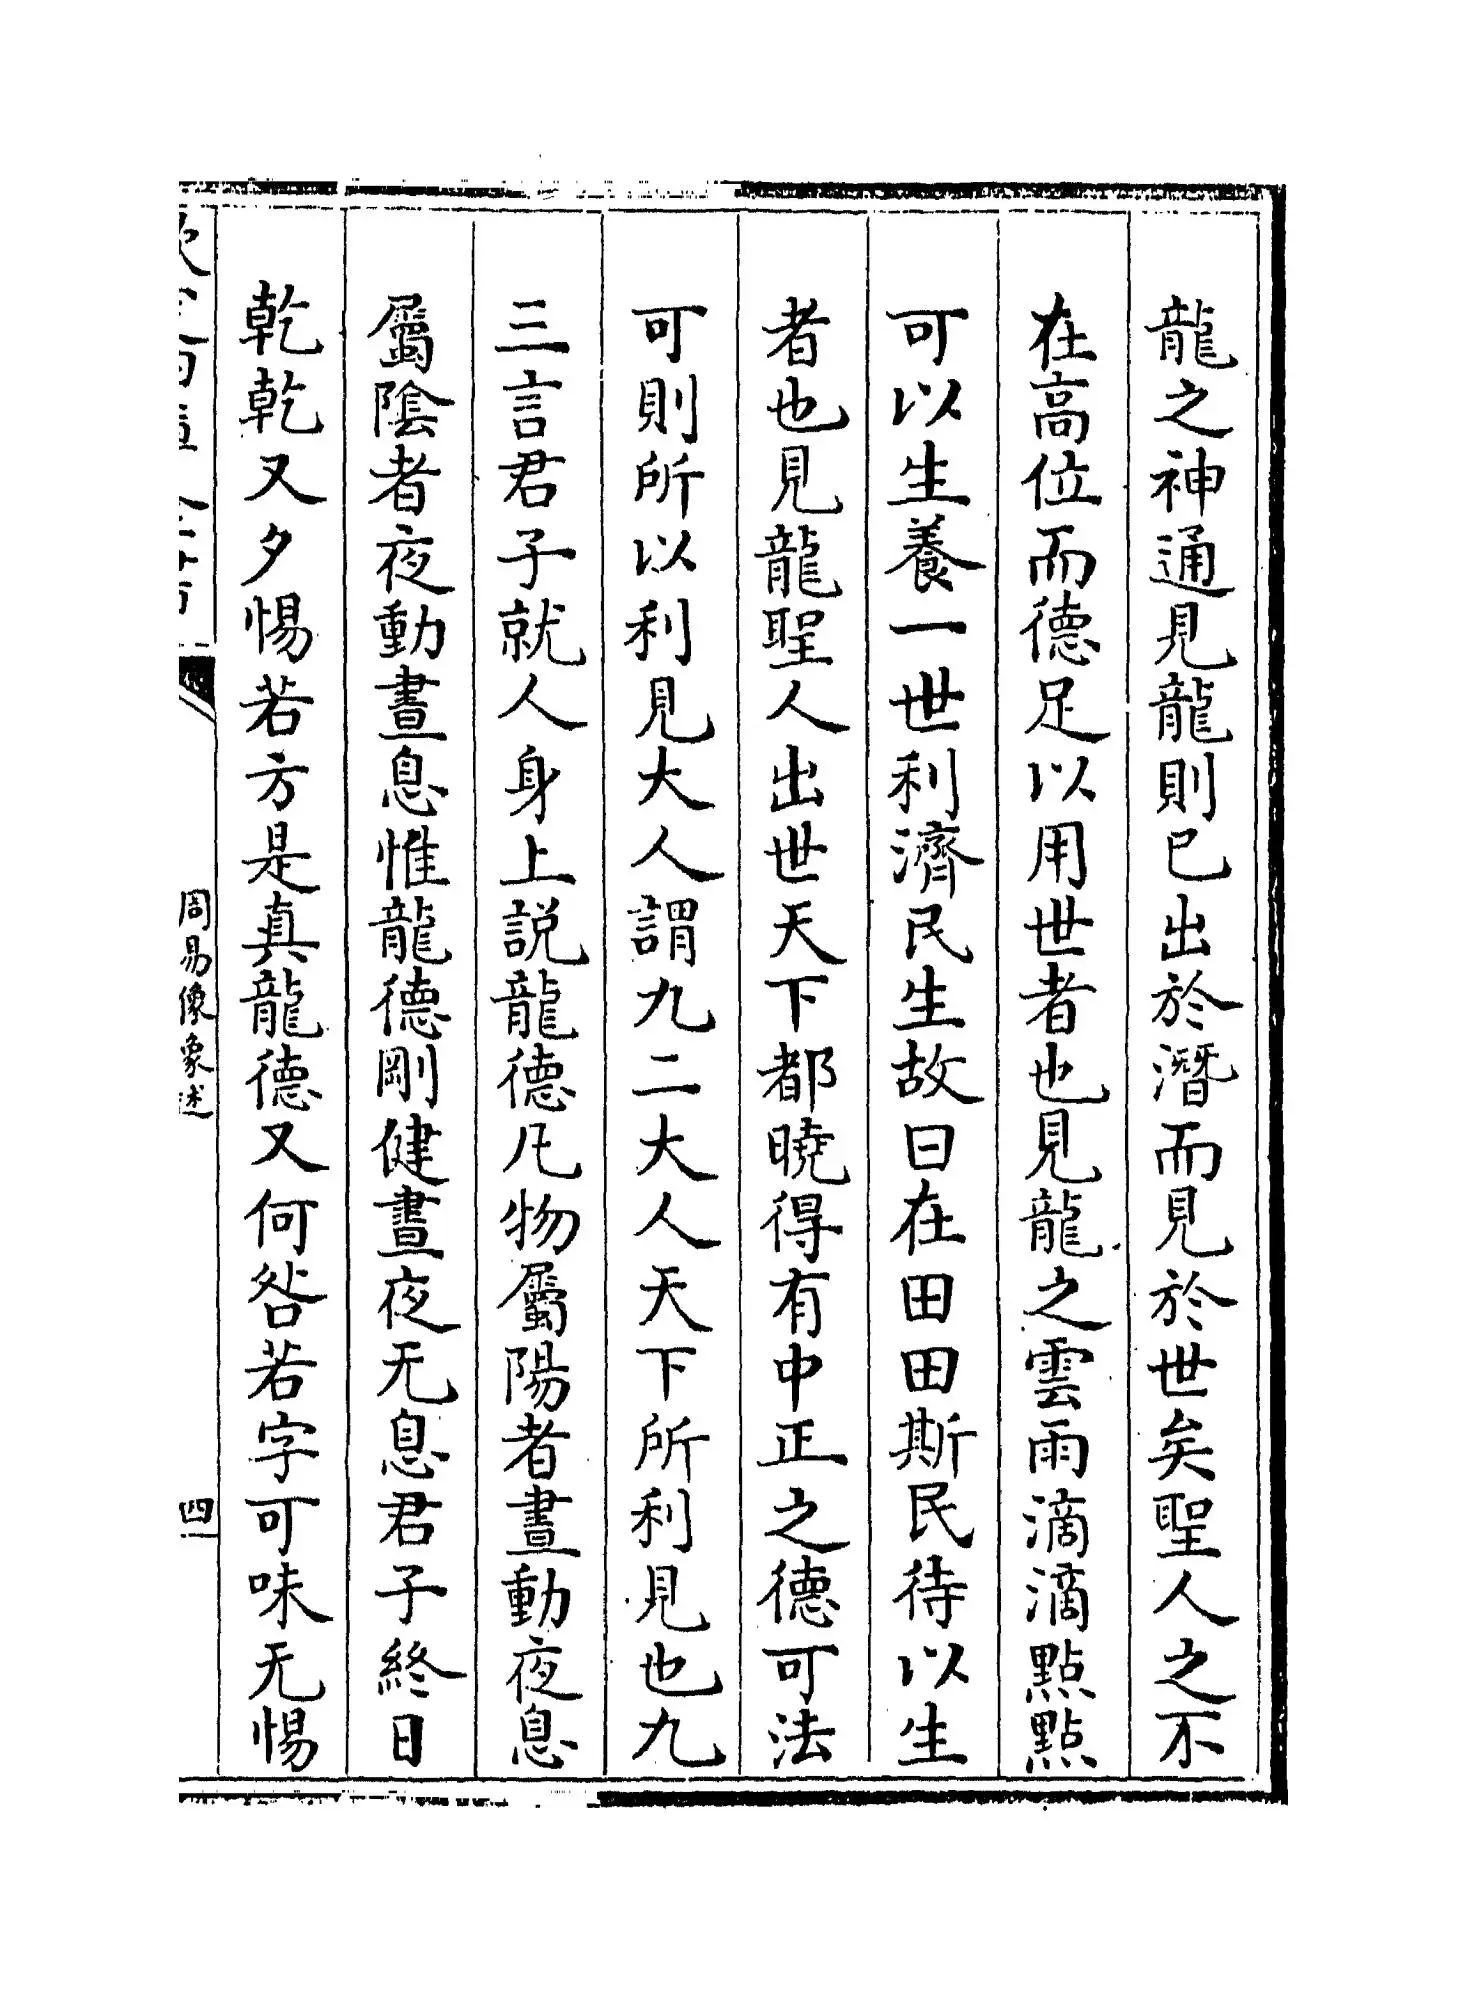 龍之神通見龍則已出於潛而見於世矣聖人之不
在高位而德足以用世者也見龍之雲雨滴滴點點
可以生養一世利濟民生故曰在田田斯民待以生
者也見龍聖人出世天下都曉得有中正之德可法
可則所以利見大人謂九二大人天下所利見也九
三言君子就人身上説龍德凡物屬陽者晝動夜息
屬陰者夜動晝息惟龍德剛健晝夜无息君子終日
乾乾又夕惕若方是真龍德又何咎若字可味无惕
周易像象述
四